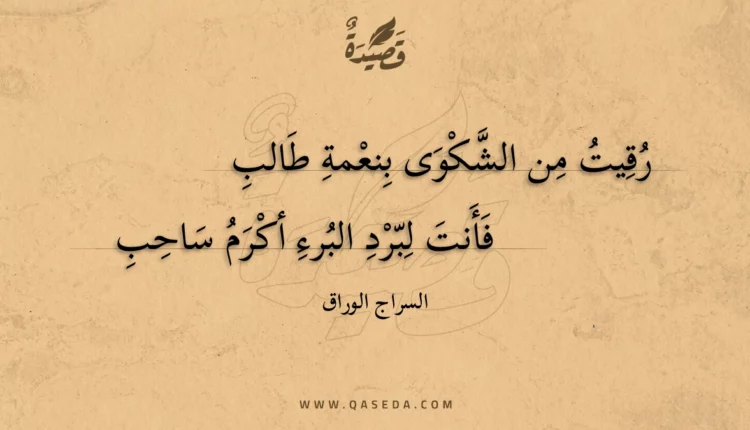 قَصِيدَةٌ
رُقِيتُ مِن الشَّكْوَى بِنعْمةِ طَالبِ
فَأَنتَ لِبّرْدِ البُرءِ أكْرَمُ سَاحِبِ
السراج الوراق
WWW.QASEDA.COM